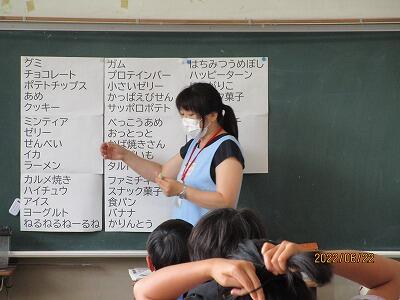 グミ
チョコレート
ポテトチップス
あめ
クッキー
ミンティア
ゼリー
せんべい
イカ
ラーメン
カルメ焼き
ハイチュウ
アイス
ヨーグルト
ねるねるねーるね
ガム
プロテインバー
小さいゼリー
かっぱえびせん
サッポロポテト
べっこうあめ
おっとっと
かば焼きさん
タル
ファミチキ
スナック菓子
食パン
バナナ
かりんとう
はちみつうめぼし
ハッピーターン
ク菓子
2022/06/22